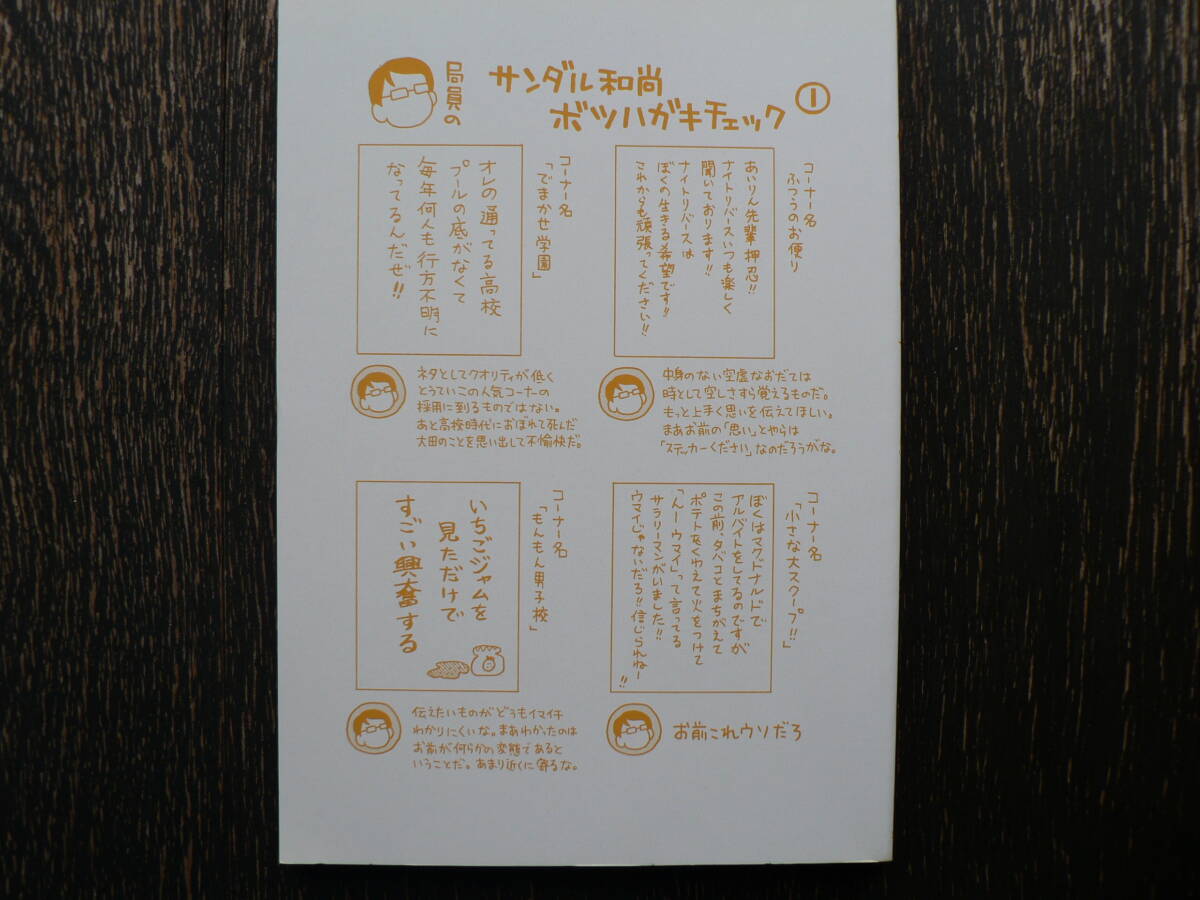 局員の
サンダル和尚
ボツハガキチェック①
コーナー名
ふつうのお便り
あいりん先輩押忍!!
ナイトリバースいつも楽しく
聞いております!!
ナイトリバースは
ぼくの生きる希望です!!
これからも頑張ってください!!
中身のない空虚なおだては
時として空しさすら覚えるものだ。
もっと上手く思いを伝えてほしい。
まあお前の「思い」とやらは
「ステッカーください」なのだろうがな。
コーナー名
「でまかせ学園」
オレの通ってる高校
プールの底がなくて
毎年何人も行方不明に
なってるんだぜ!!
ネタとしてクオリティが低く
とうていこの人気コーナーの
採用に到るものではない。
あと高校時代におぼれて死んだ
太田のことを思い出して不愉快だ。
コーナー名
「小さな大スクープ!!」
ぼくはマグドナルドで
アルバイトをしてるのですが
この前、タバコとまちがえて
ポテトをくわえて火をつけて
「んーウマイ」って言ってる
サラリーマンがいました!!
ウマイじゃないだろ!!信じられねー!!
お前これウソだろ
コーナー名
「もんもん男子校」
いちごジャムを
見ただけで
すごい興奮する
伝えたいものがどうもイマイチ
わかりにくいな。まあわかったのは
お前が何らかの変態であると
いうことだ。あまり近くに寄るな。